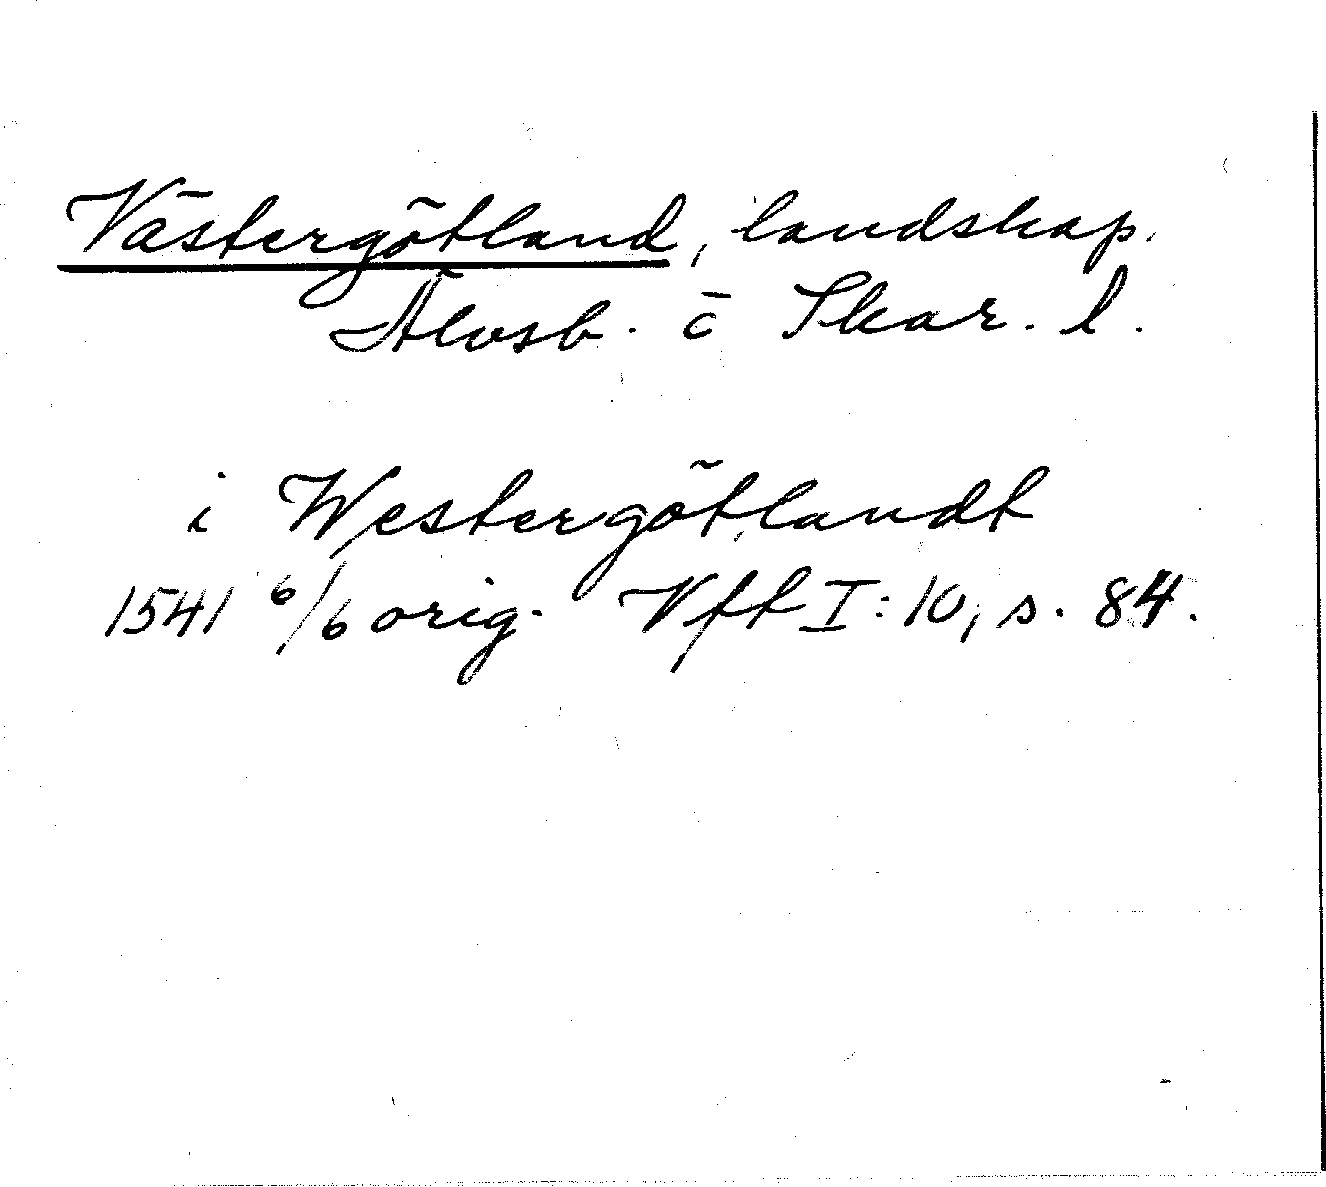 Västergötland, landskap.
Älvsb. o Skar. l.
i Westergötlandt
1541 6/6 orig. Vff I:10, s. 84.